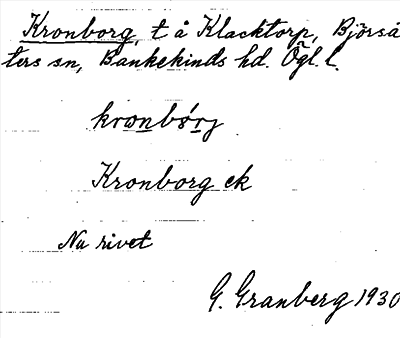 Kronborg, t å Klacktorp, Björsä
ters sn, Bankekinds hd. Ögl. l.
kronbórj
Kronborg ek
Nu rivet
G. Granberg 1930